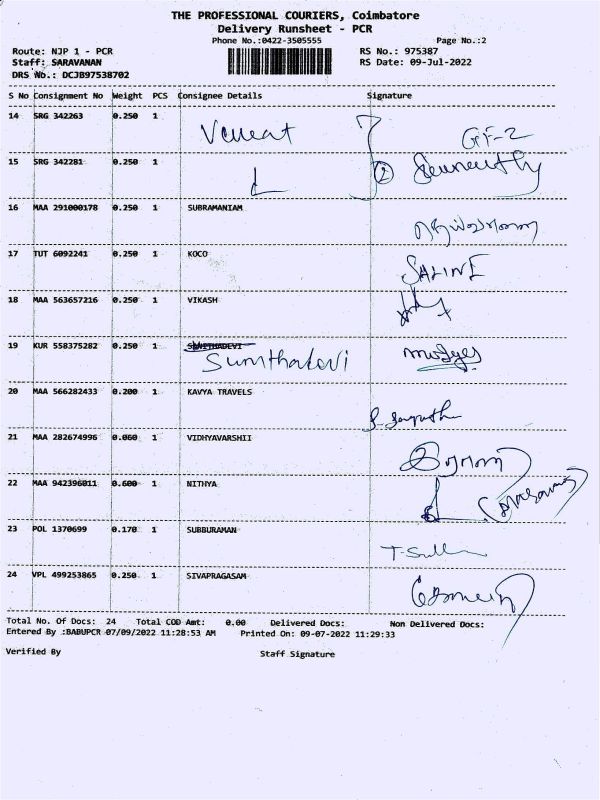 THE PROFESSIONAL COURIERS, Coimbatore
Delivery Runsheet - PCR
Phone No.:0422-3505555 Page No.:2
Route: NJP 1 - PCR RS No.: 975387
Staff: SARAVANAN RS Date: 09-Jul-2022
DRS No.: DCJB97538702
S No Consignment No Weight PCS Consignee Details Signature
14 SRG 342263 0.250 1
GF-2
15 SRG 342281 0.250 1
2
16 MAA 291000178 0.250 1 SUBRAMANIAM
17 TUT 6092241 0.250 1 KOCO
SALINE
18 MAA 563657216 0.250 1 VIKASH
19 KUR 558375282 0.250 1
Sumithadevi
20 MAA 566282433 0.200 1 KAVYA TRAVELS
21 MAA 282674996 0.060 1 VIDHYAVARSHII
22 MAA 942396011 0.600 1 NITHYA
23 POL 1370699 0.170 1 SUBBURAMAN
24 VPL 499253865 0.250 1 SIVAPRAGASAM
Total No. Of Docs: 24 Total COD Amt: 0.00 Delivered Docs: Non Delivered Docs:
Entered By :BABUPCR 07/09/2022 11:28:53 AM Printed On: 09-07-2022 11:29:33
Verified By Staff Signature